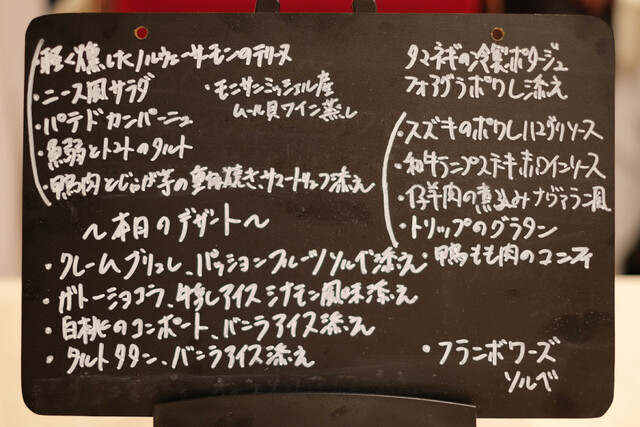 ・軽く燻したノルウェーサーモンのテリーヌ
・ニース風サラダ
・モンサンミッシェル産
ムール貝ワイン蒸し
・パテドカンパーニュ
とトマトのタルト
・鴨肉とじゃが芋の重ね焼き、サワートリュフ添え
タマネギの冷製ポタージュ
フォアグラポワレ添え
・スズキのポワレハマグリソース
・和牛ランプステーキ赤ワインソース
・仔羊肉の煮込みナヴァラン風
・トリップのグラタン
・鴨もも肉のコンフィ
〜本日のデザート〜
・クレームブリュレ、パッションフルーツソルベ添え
・ガトーショコラ、アイスシナモン風味添え
・白桃のコンポート、バニラアイス添え
・タルトタタン、バニラアイス添え
・フランボワーズ
ソルベ